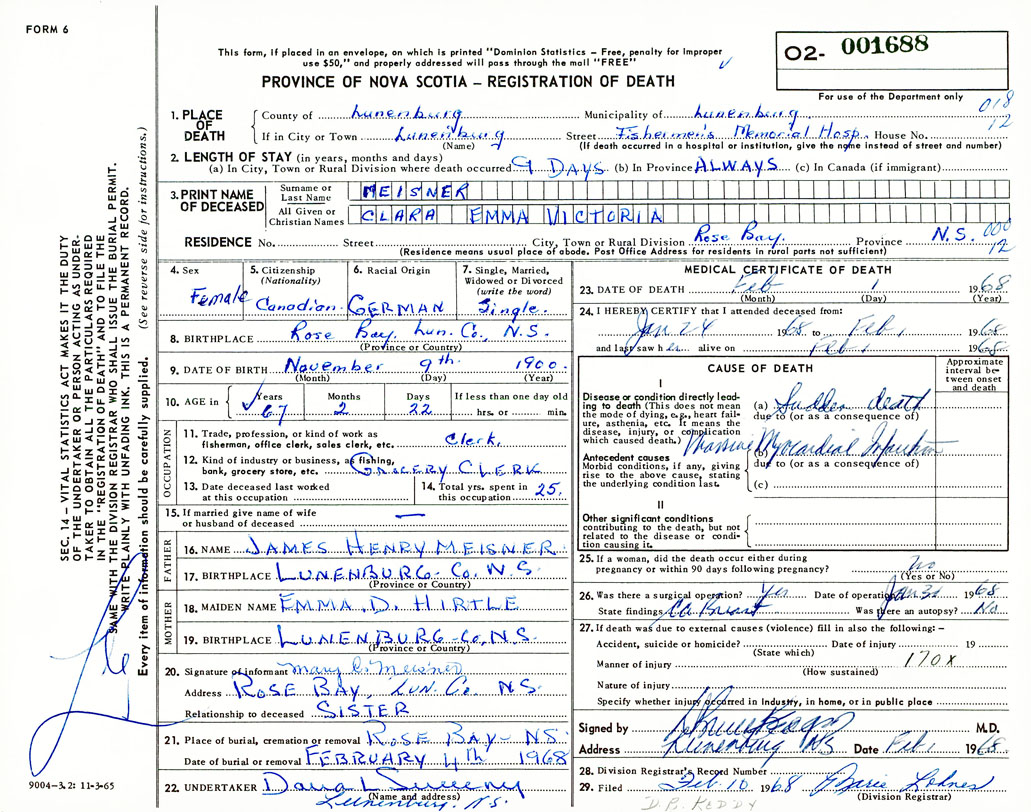 FORM 6
This form, if placed in an envelope, on which is printed "Dominion Statistics – Free, penalty for improper
use $50," and properly addressed will pass through the mail "FREE"
PROVINCE OF NOVA SCOTIA – REGISTRATION OF DEATH
02- 001688
For use of the Department only
018
12
1. PLACE OF DEATH County of Lunenburg Municipality of Lunenburg
If in City or Town Lunenburg Street Fishermen's Memorial Hosp. House No.
(Name) (If death occurred in a hospital or institution, give the name instead of street and number)
2. LENGTH OF STAY (in years, months and days)
(a) In City, Town or Rural Division where death occurred 9 DAYS (b) In Province ALWAYS (c) In Canada (if immigrant)
3. PRINT NAME OF DECEASED Surname or Last Name MEISNER
All Given or Christian Names CLARA EMMA VICTORIA
RESIDENCE No. Street City, Town or Rural Division Rose Bay. Province N.S. 000
12
(Residence means usual place of abode. Post Office Address for residents in rural parts not sufficient)
4. Sex Female
5. Citizenship (Nationality) Canadian
6. Racial Origin GERMAN
7. Single, Married, Widowed or Divorced (write the word) Single.
8. BIRTHPLACE Rose Bay, Lun. Co., N.S.
(Province or Country)
9. DATE OF BIRTH November 9th. 1900.
(Month) (Day) (Year)
10. AGE in Years 67 Months 2 Days 22 If less than one day old hrs. or min.
OCCUPATION
11. Trade, profession, or kind of work as fisherman, office clerk, etc. Clerk.
12. Kind of industry or business, as fishing, bank, grocery store, etc. GROCERY CLERK
13. Date deceased last worked at this occupation
14. Total yrs. spent in this occupation 25.
15. If married give name of wife or husband of deceased —
FATHER
16. NAME JAMES HENRY MEISNER
17. BIRTHPLACE LUNENBURG- Co. N.S.
(Province or Country)
MOTHER
18. MAIDEN NAME EMMA. D. HIRTLE
19. BIRTHPLACE LUNENBURG-Co, N.S.
(Province or Country)
20. Signature of informant Mary C. Meisner
Address ROSE BAY, LUN. Co. NS.
Relationship to deceased SISTER
21. Place of burial, cremation or removal ROSE BAY- NS.
Date of burial or removal FEBRUARY 4th 1968
22. UNDERTAKER
(Name and address)
Lunenburg, N.S.
MEDICAL CERTIFICATE OF DEATH
23. DATE OF DEATH Feb 1 1968
(Month) (Day) (Year)
24. I HEREBY CERTIFY that I attended deceased from:
Jan 24 1968 to Feb 1 1968
and last saw her alive on Feb 1 1968
CAUSE OF DEATH
Approximate interval between onset and death
I
Disease or condition directly leading to death (This does not mean the mode of dying, e.g., heart failure, asthenia, etc. It means the disease, injury, or complication which caused death.)
(a) Sudden death
due to (or as a consequence of)
Massive Myocardial Infarction
Antecedent causes
Morbid conditions, if any, giving rise to the above cause, stating the underlying condition last.
(b)
due to (or as a consequence of)
(c)
II
Other significant conditions
contributing to the death, but not related to the disease or condition causing it.
25. If a woman, did the death occur either during
pregnancy or within 90 days following pregnancy? No
(Yes or No)
26. Was there a surgical operation? Yes Date of operation Jan 31 1968
State findings Ca Breast Was there an autopsy? No
27. If death was due to external causes (violence) fill in also the following: –
Accident, suicide or homicide? Date of injury 19
(State which)
Manner of injury 170X
(How sustained)
Nature of injury
Specify whether injury occurred in Industry, in home, or in public place
Signed by M.D.
Address Lunenburg NS Date Feb 1 1968
28. Division Registrar's Record Number
29. Filed Feb. 10 1968
(Division Registrar)
D.B. REDDY
9004–3.2: 11-3-65
SEC. 14 – VITAL STATISTICS ACT MAKES IT THE DUTY
OF THE UNDERTAKER OR PERSON ACTING AS UNDER-
TAKER TO OBTAIN ALL THE PARTICULARS REQUIRED
IN THE "REGISTRATION OF DEATH" AND TO FILE THE
SAME WITH THE DIVISION REGISTRAR WHO SHALL ISSUE THE BURIAL PERMIT.
WRITE PLAINLY WITH UNFADING INK. THIS IS A PERMANENT RECORD.
Every item of information should be carefully supplied. (See reverse side for instructions.)